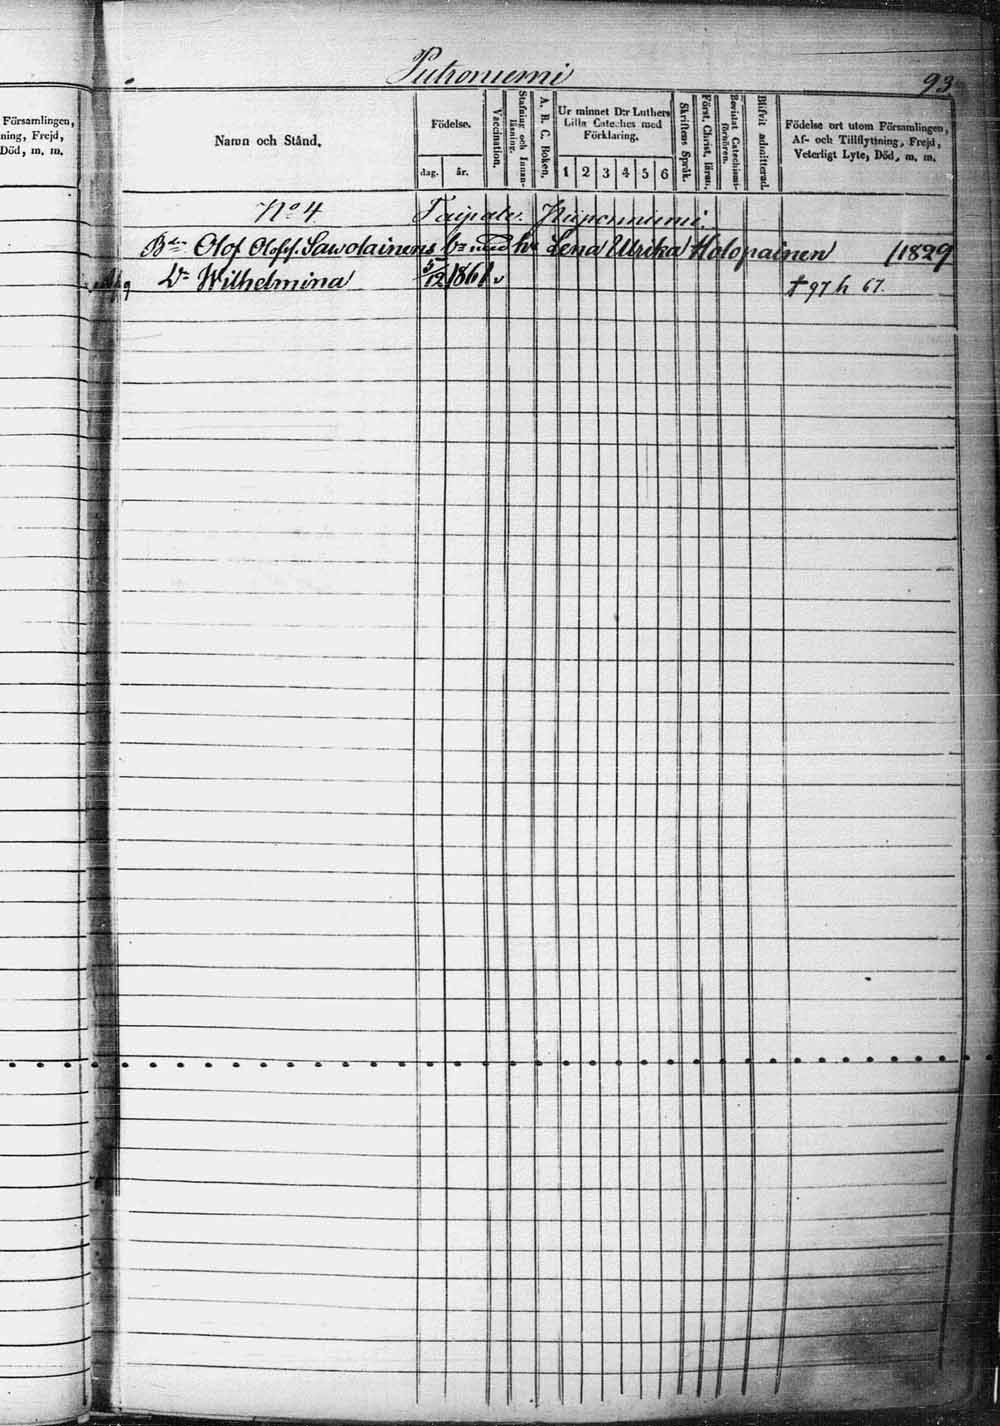 Putroniemi
93
Församlingen,
ning, Frejd,
Död, m. m.
Namn och Stånd.
Födelse.
dag.
år.
Vaccination.
Stafning och Innan-
läsning.
A. B. C. Boken.
Ur minnet D:r Luthers
Lilla Cateches med
Förklaring.
1 2 3 4 5 6
Skriftens Språk.
Först. Christ. läran.
Bevistat Catechismi-
förhören.
Blifvit admitterad.
Födelse ort utom Församlingen,
Af- och Tillflyttning, Frejd,
Veterligt Lyte, Död, m. m.
No 4 Taipale.
Olof Olofs. Sawolainens med Lena Ulrika Holopainen /1829
Dr Wilhelmina 5/12 1861 v † 97 h 67.